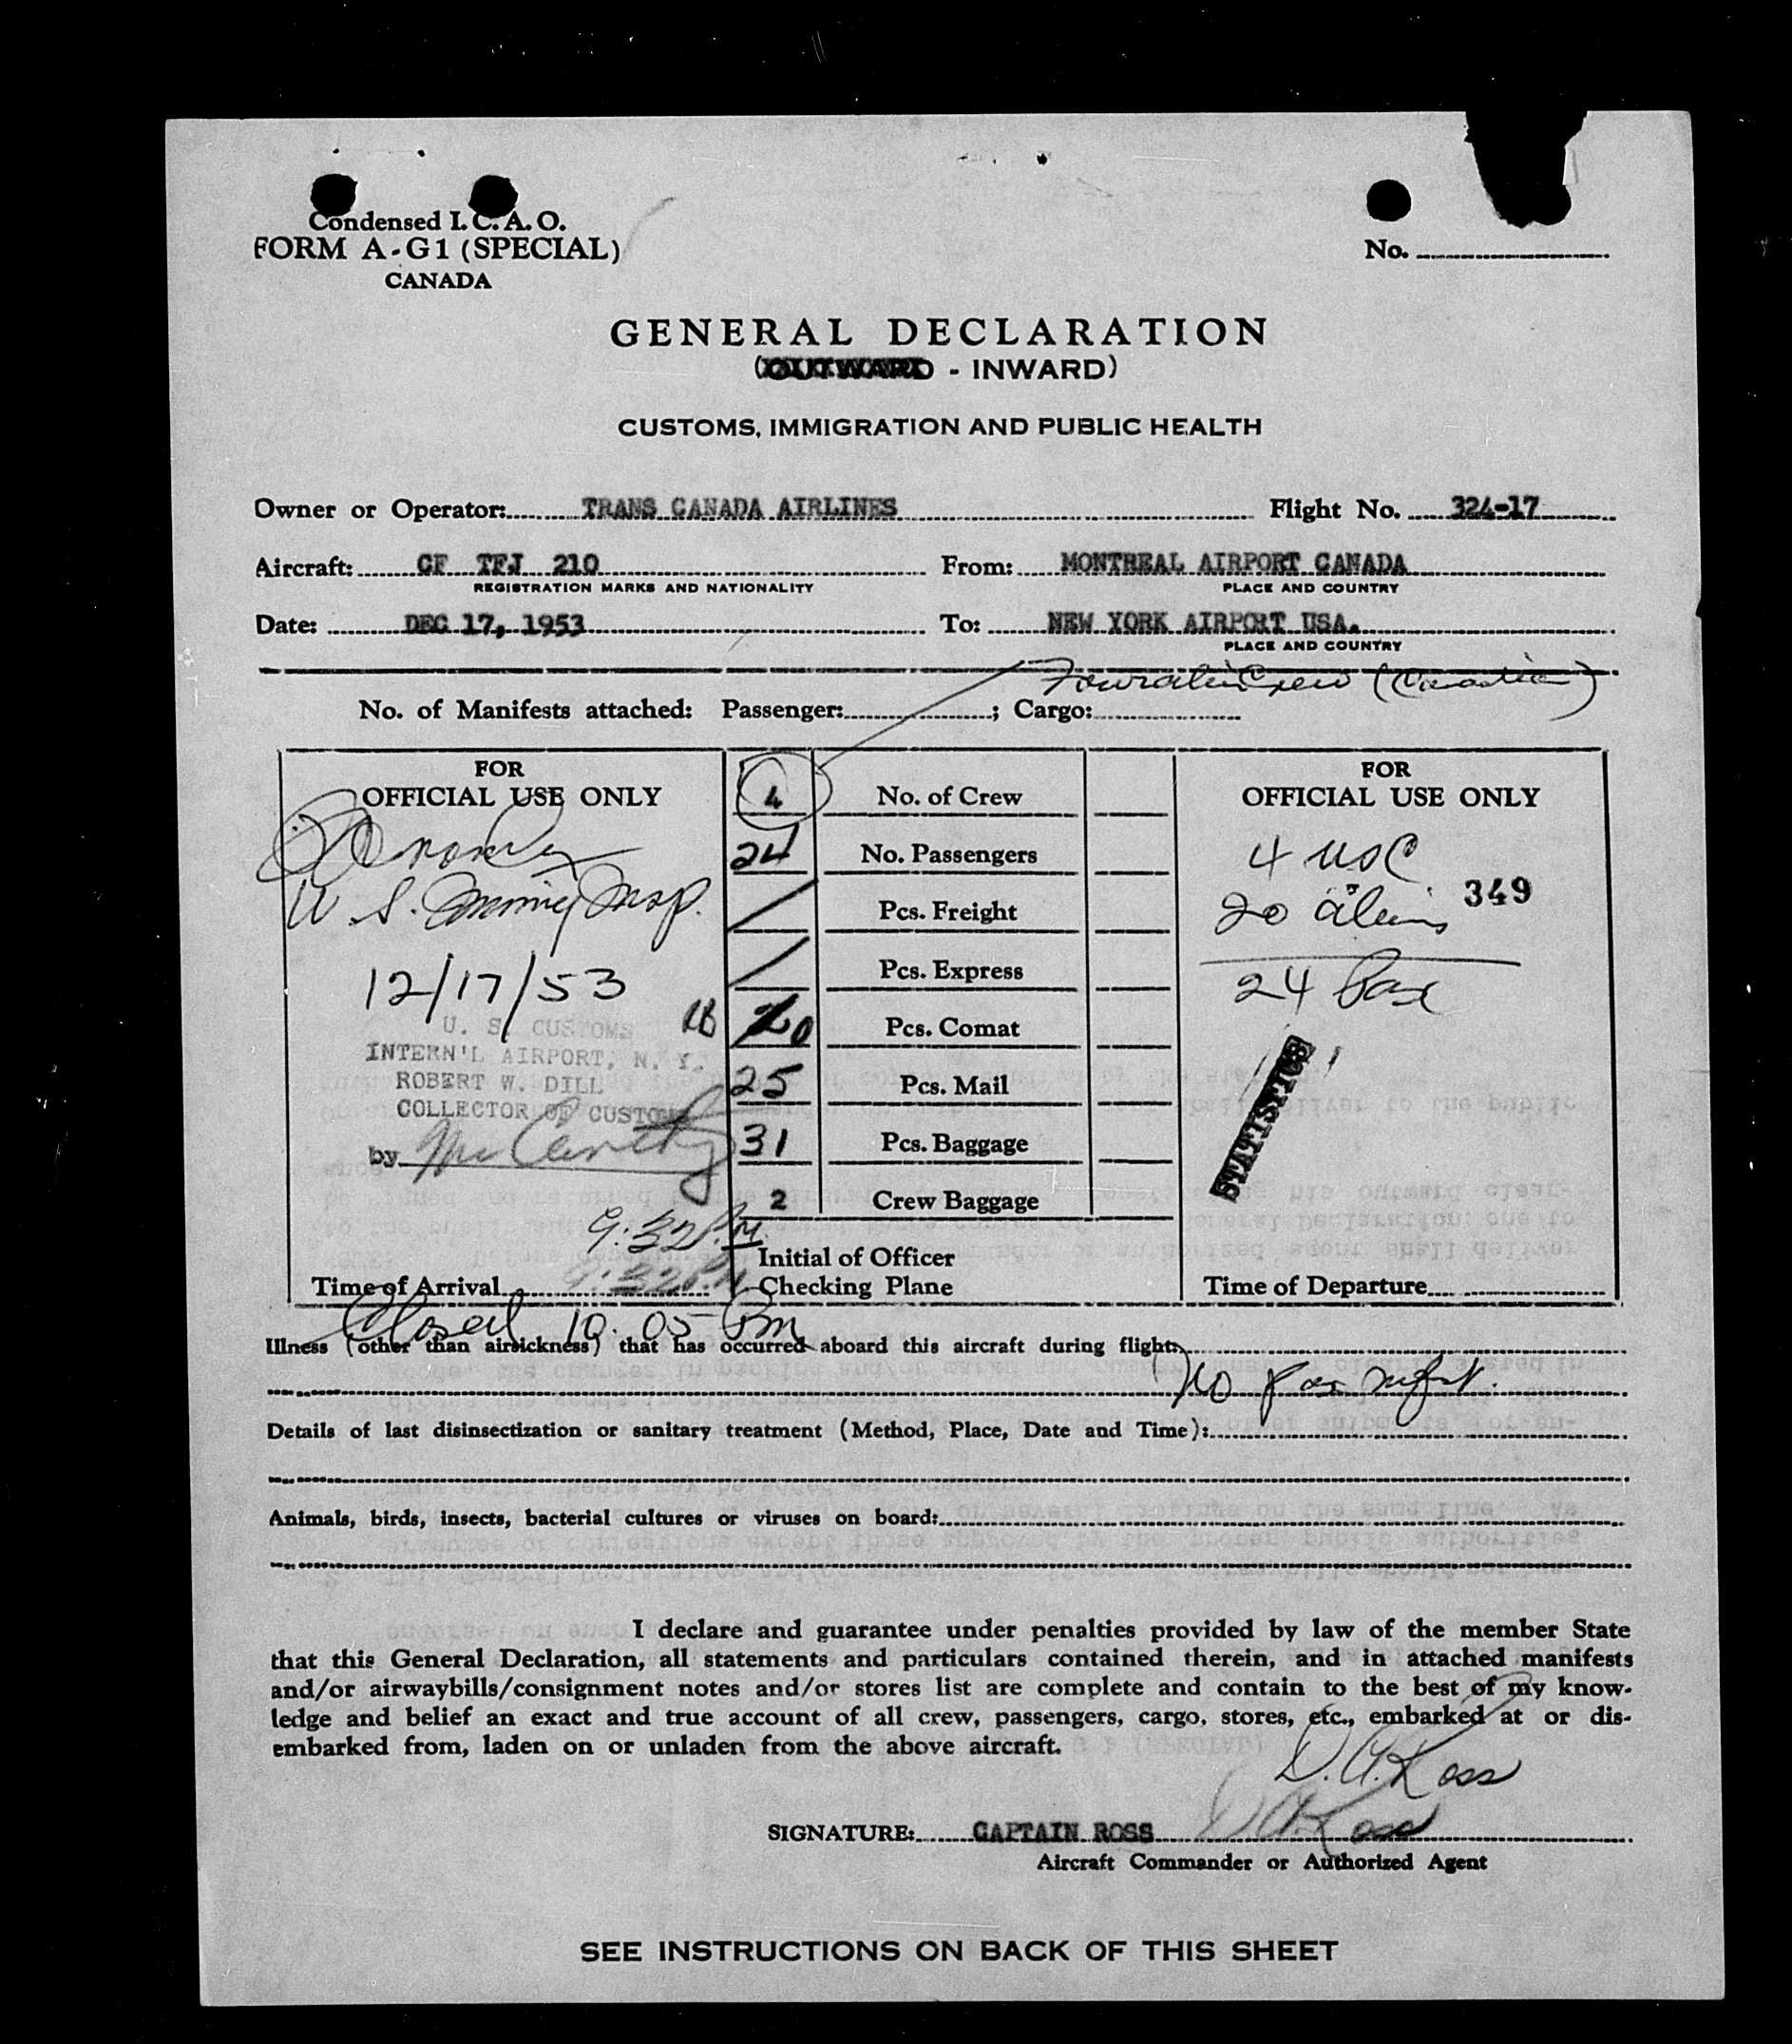 Condensed I. C. A. O.
FORM A-G1 (SPECIAL)
CANADA
No.
GENERAL DECLARATION
(OUTWARD - INWARD)
CUSTOMS, IMMIGRATION AND PUBLIC HEALTH
Owner or Operator: TRANS CANADA AIRLINES Flight No. 324-17
Aircraft: CF TFJ 210 From: MONTREAL AIRPORT CANADA
REGISTRATION MARKS AND NATIONALITY PLACE AND COUNTRY
Date: DEC 17, 1953 To: NEW YORK AIRPORT USA.
PLACE AND COUNTRY
Four alien Crew (Canadian)
No. of Manifests attached: Passenger: ; Cargo:
FOR OFFICIAL USE ONLY
U. S. Immig Insp.
12/17/53
U. S. CUSTOMS
INTERN'L AIRPORT, N. Y.
ROBERT W. DILL
COLLECTOR OF CUSTOMS
by McCarthy
9:32 P.M.
Time of Arrival 9:32 P.M.
Closed 10:05 Pm
4 No. of Crew
24 No. Passengers
/ Pcs. Freight
/ Pcs. Express
Pcs. Comat
25 Pcs. Mail
31 Pcs. Baggage
2 Crew Baggage
Initial of Officer
Checking Plane
FOR OFFICIAL USE ONLY
4 USC
20 aliens 349
24 Pax
STATISTICS
Time of Departure
Illness (other than airsickness) that has occurred aboard this aircraft during flight:
No Pax Mfst.
Details of last disinsectization or sanitary treatment (Method, Place, Date and Time):
Animals, birds, insects, bacterial cultures or viruses on board:
I declare and guarantee under penalties provided by law of the member State
that this General Declaration, all statements and particulars contained therein, and in attached manifests
and/or airwaybills/consignment notes and/or stores list are complete and contain to the best of my know-
ledge and belief an exact and true account of all crew, passengers, cargo, stores, etc., embarked at or dis-
embarked from, laden on or unladen from the above aircraft.
D. A. Ross
SIGNATURE: CAPTAIN ROSS D A Ross
Aircraft Commander or Authorized Agent
SEE INSTRUCTIONS ON BACK OF THIS SHEET